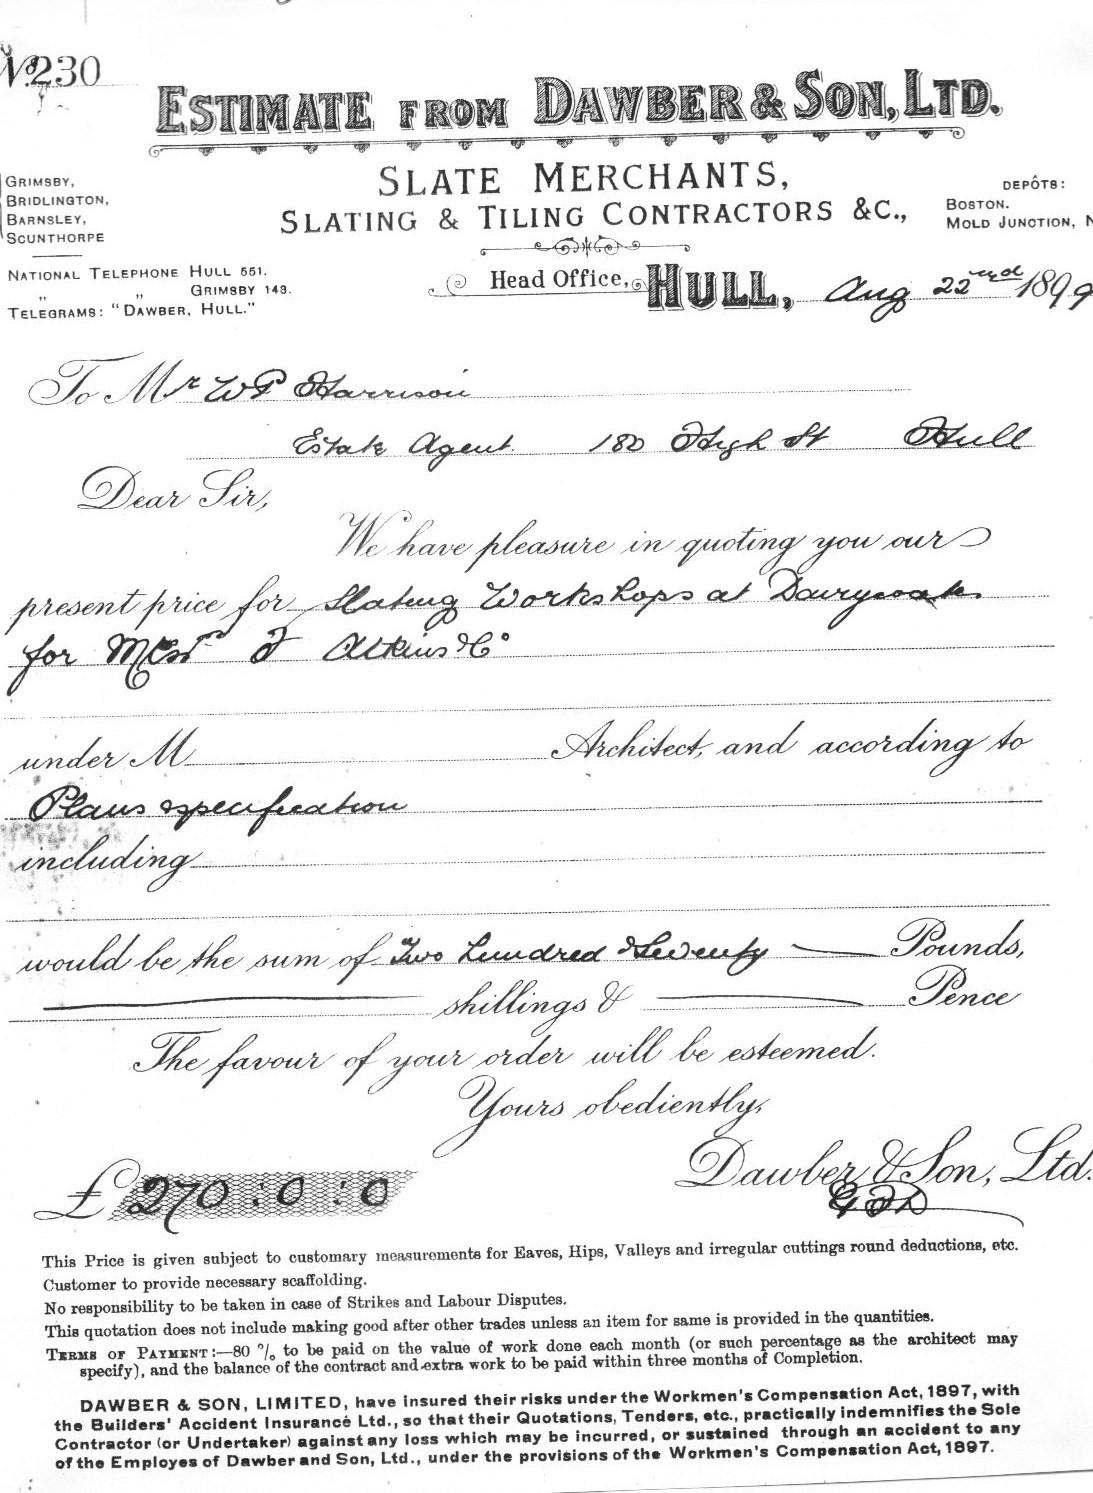 No. 230
ESTIMATE FROM DAWBER & SON, LTD.
SLATE MERCHANTS,
SLATING & TILING CONTRACTORS &C.,
GRIMSBY,
BRIDLINGTON,
BARNSLEY,
SCUNTHORPE
DEPÔTS:
BOSTON.
MOLD JUNCTION, N
NATIONAL TELEPHONE HULL 551.
" " GRIMSBY 143.
TELEGRAMS: "DAWBER, HULL."
Head Office, HULL, Aug 22nd 1899
To Mr W P Harrison
Estate Agent 180 High St Hull
Dear Sir,
We have pleasure in quoting you our
present price for Slating Workshops at Dairycoates
for Messrs F Atkins & Co
under M Architect, and according to
Plans & specification
including
would be the sum of Two hundred & Seventy Pounds,
shillings & Pence
The favour of your order will be esteemed.
Yours obediently,
Dawber & Son, Ltd.
£270:0:0
This Price is given subject to customary measurements for Eaves, Hips, Valleys and irregular cuttings round deductions, etc.
Customer to provide necessary scaffolding.
No responsibility to be taken in case of Strikes and Labour Disputes.
This quotation does not include making good after other trades unless an item for same is provided in the quantities.
TERMS OF PAYMENT:—80 % to be paid on the value of work done each month (or such percentage as the architect may
specify), and the balance of the contract and extra work to be paid within three months of Completion.
DAWBER & SON, LIMITED, have insured their risks under the Workmen's Compensation Act, 1897, with
the Builders' Accident Insurance Ltd., so that their Quotations, Tenders, etc., practically indemnifies the Sole
Contractor (or Undertaker) against any loss which may be incurred, or sustained through an accident to any
of the Employes of Dawber and Son, Ltd., under the provisions of the Workmen's Compensation Act, 1897.